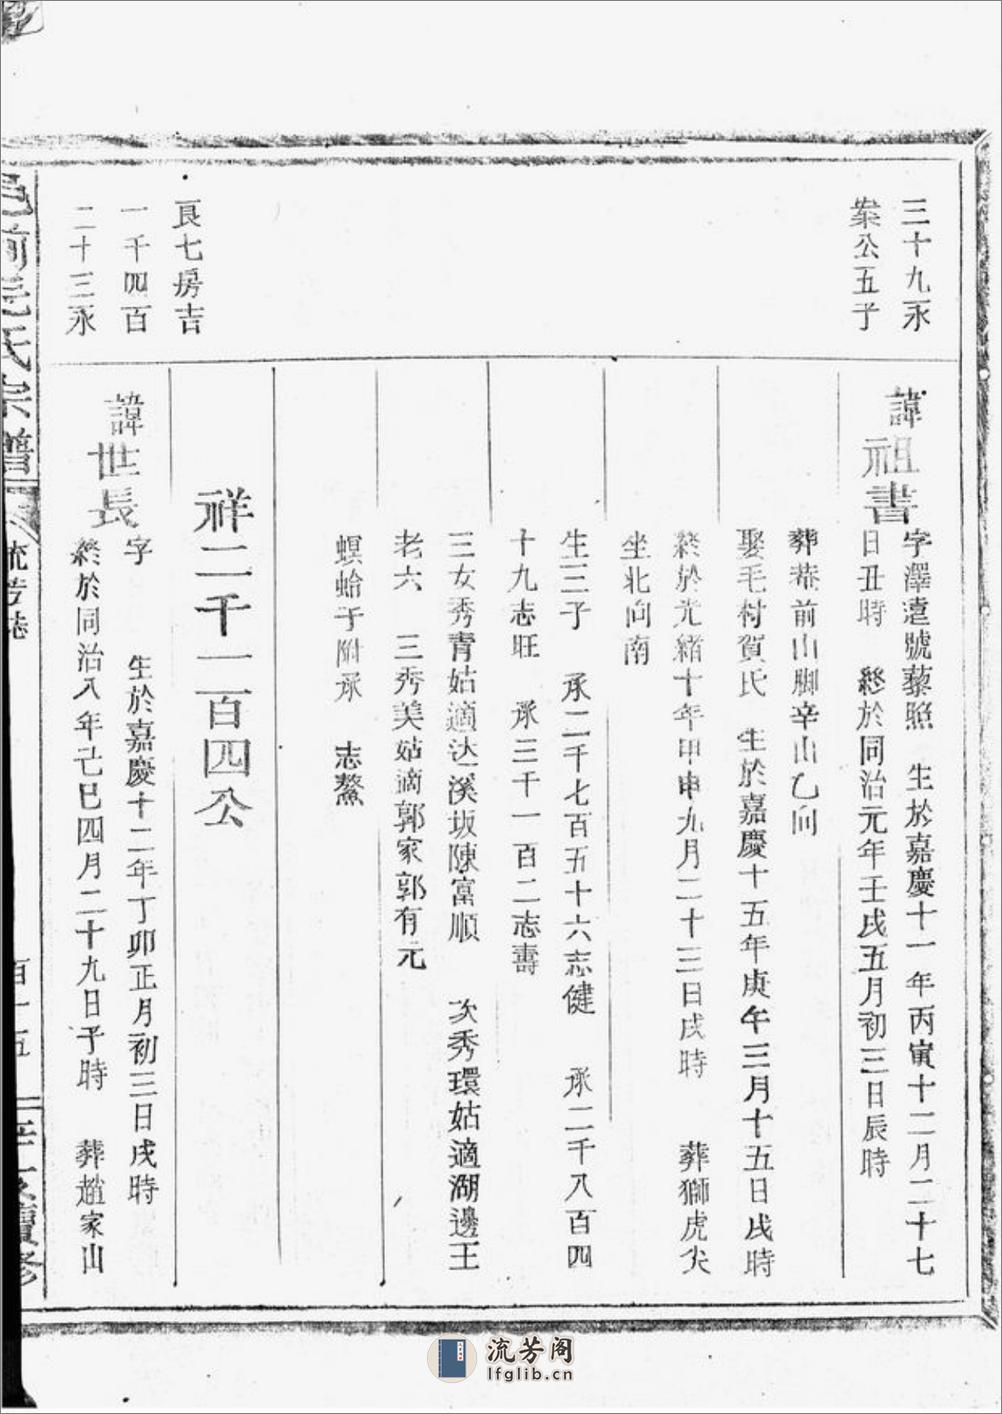 三十九永
案公五子
諱祖書
字澤遠號藜照 生於嘉慶十一年丙寅十二月二十七
日丑時 終於同治元年壬戌五月初三日辰時
葬菴前山脚辛山乙向
娶毛村賀氏 生於嘉慶十五年庚午三月十五日戌時
終於光緒十年甲申九月二十三日戌時 葬獅虎尖
坐北向南
生三子 承二千七百五十六志健 承二千八百四
十九志旺 承三千一百二志壽
三女秀青姑適达溪坂陳富順 次秀環姑適湖邊王
老六 三秀美姑適郭家郭有元
螟蛉子附承 志鰲
祥二千一百四公
良七房吉
一千四百
二十三永
諱世長
字 生於嘉慶十二年丁卯正月初三日戌時
終於同治八年己巳四月二十九日子時 葬趙家山
前毛氏宗譜
流芳誌
百十五
續修
流芳阁
lfglib.cn